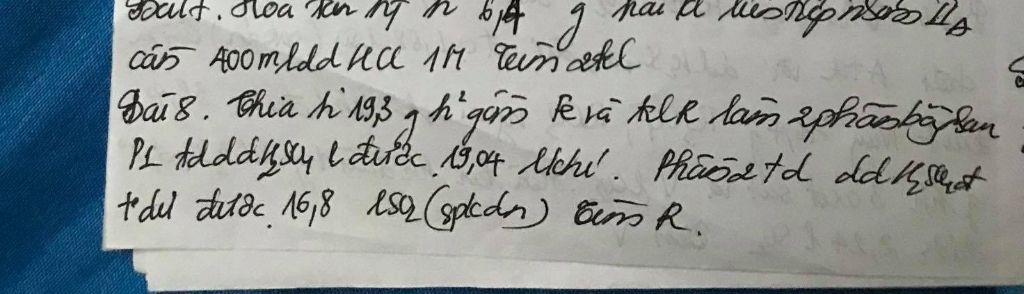 Bài 7. Hòa tan hỗ h 6,4 g hai kl liên tiếp nhóm IIA
cần 400ml dd HCl 1M tìm 2kl
Bài 8. Chia h² 19,3 g h² gồm Fe và kl R làm 2 phần bằng nhau
P1 td dd H2SO4 l được 19,04 l khí. Phần 2 td dd H2SO4 đ
t dư được 16,8 l SO2 (spkdn) tìm R.